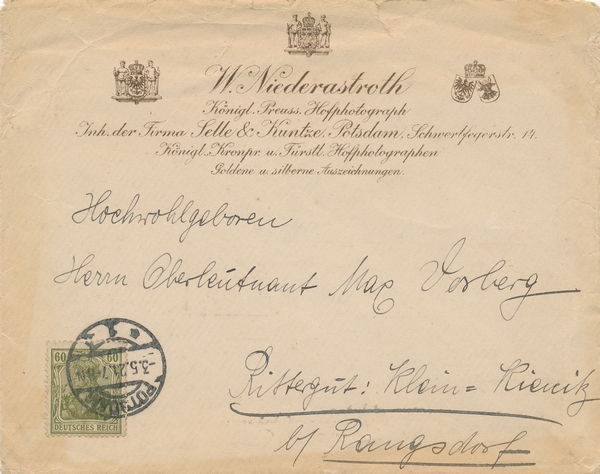 W. Niederastroth
Königl. Preuss. Hofphotograph
Inh. der Firma Selle & Kuntze, Potsdam, Schwertfegerstr. 14.
Königl. Kronpr. u. Fürstl. Hofphotographen
Goldene u. silberne Auszeichnungen.
Hochwohlgeboren
Herrn Oberleutnant Max Vorberg
Rittergut: Klein=Kienitz
b/ Rangsdorf
60 60
-3.5.21.7-8N
POTSDAM
DEUTSCHES REICH